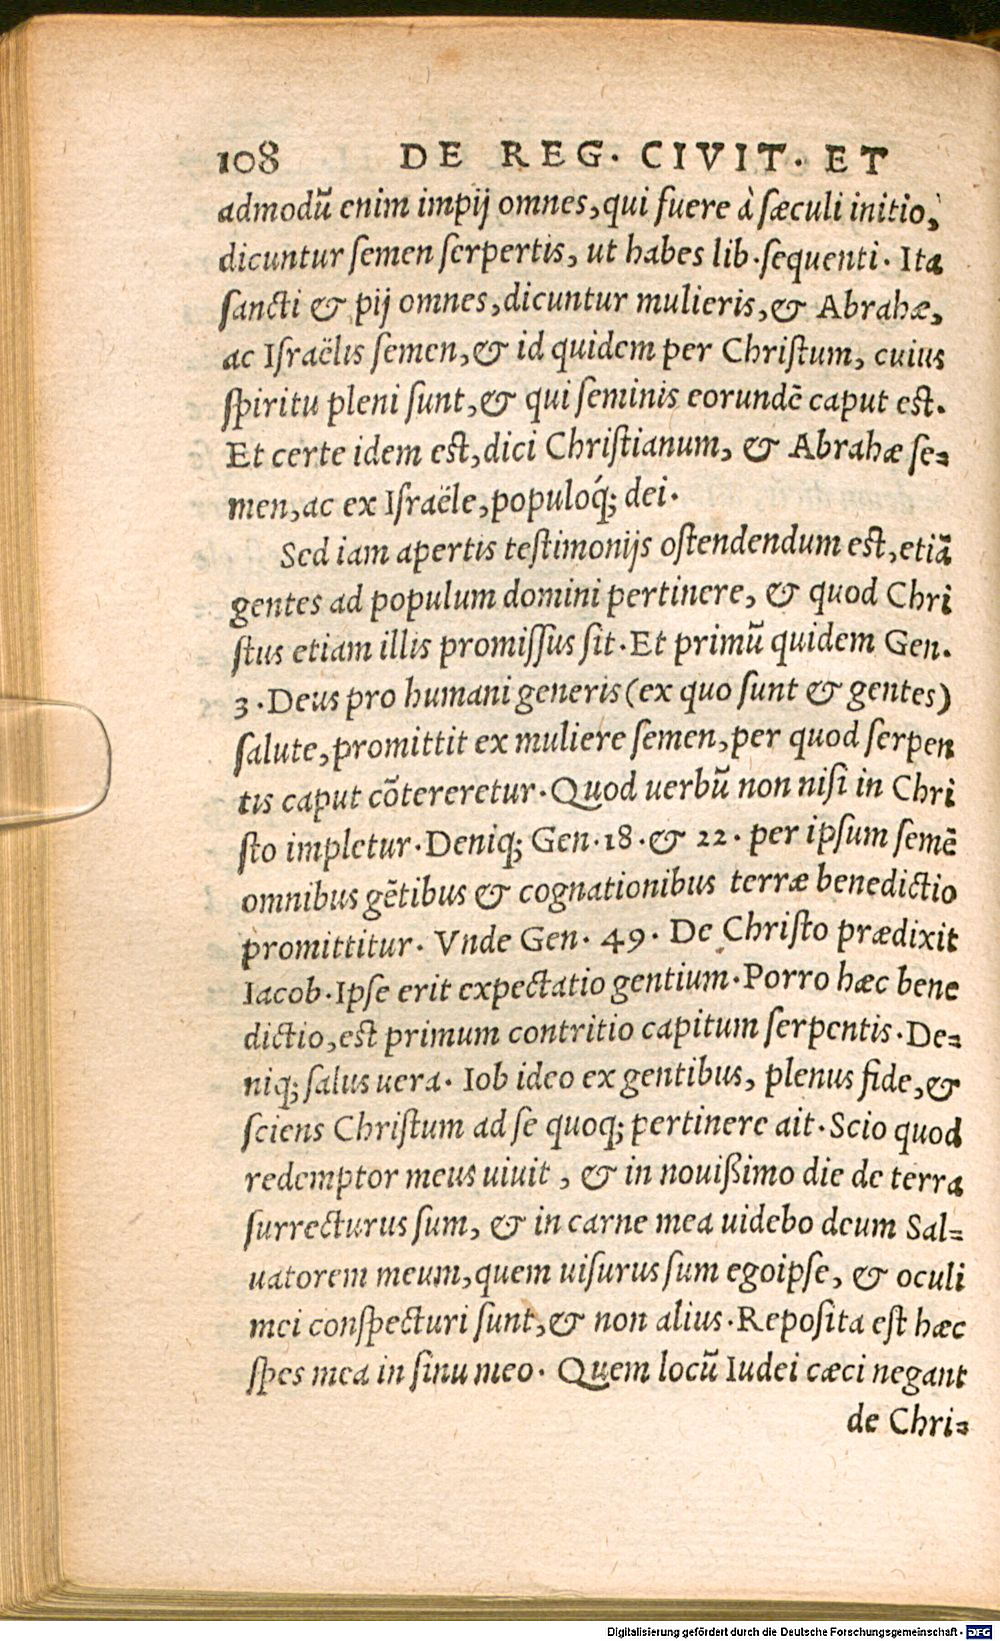 108 DE REG. CIVIT. ET
admodũ enim impij omnes, qui fuere à ſæculi initio,
dicuntur ſemen ſerpertis, ut habes lib. ſequenti. Ita
ſancti & pij omnes, dicuntur mulieris, & Abrahæ,
ac Iſraëlis ſemen, & id quidem per Chriſtum, cuius
ſpiritu pleni ſunt, & qui ſeminis eorundẽ caput eſt.
Et certe idem eſt, dici Chriſtianum, & Abrahæ ſe=
men, ac ex Iſraële, populoq́; dei.
Sed iam apertis teſtimonijs oſtendendum eſt, etiã
gentes ad populum domini pertinere, & quod Chri
ſtus etiam illis promiſſus ſit. Et primũ quidem Gen.
3. Deus pro humani generis (ex quo ſunt & gentes)
ſalute, promittit ex muliere ſemen, per quod ſerpen
tis caput cõtereretur. Quod uerbũ non niſi in Chri
ſto impletur. Deniq; Gen. 18. & 22. per ipſum ſemẽ
omnibus gẽtibus & cognationibus terræ benedictio
promittitur. Vnde Gen. 49. De Chriſto prædixit
Iacob. Ipſe erit expectatio gentium. Porro hæc bene
dictio, eſt primum contritio capitum ſerpentis. De=
niq; ſalus uera. Iob ideo ex gentibus, plenus fide, &
ſciens Chriſtum ad ſe quoq; pertinere ait. Scio quod
redemptor meus uiuit, & in nouißimo die de terra
ſurrecturus ſum, & in carne mea uidebo deum Sal=
uatorem meum, quem uiſurus ſum egoipſe, & oculi
mei conſpecturi ſunt, & non alius. Repoſita eſt hæc
ſpes mea in ſinu meo. Quem locũ Iudei cæci negant
de Chri=
Digitalisierung gefördert durch die Deutsche Forschungsgemeinschaft - DFG